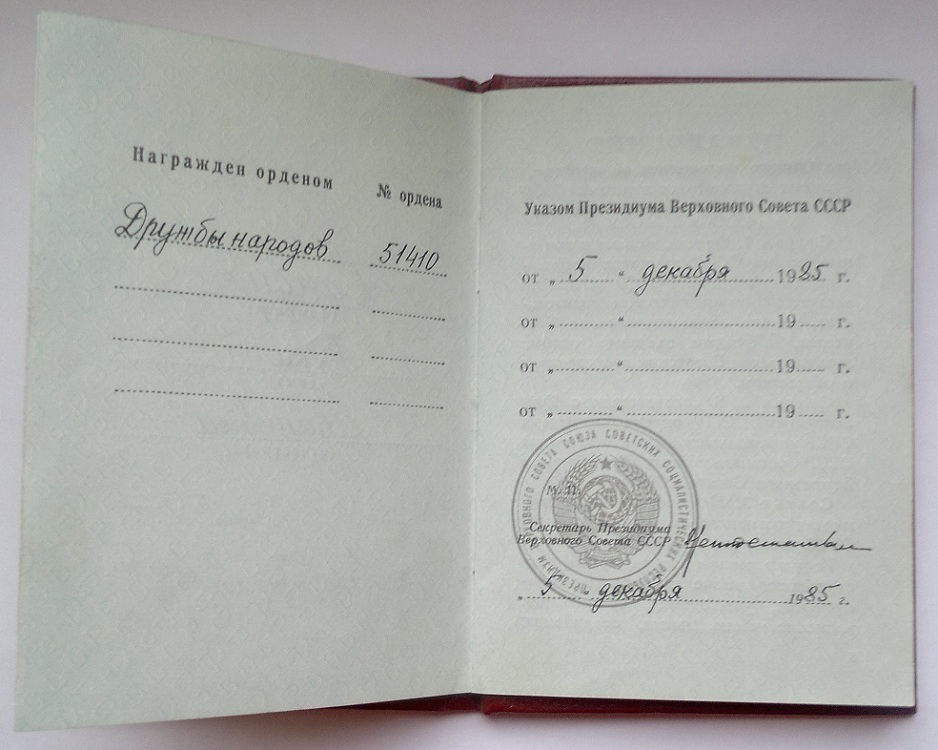 Награжден орденом
№ ордена
Дружбы народов
51410
Указом Президиума Верховного Совета СССР
от „ 5 “ декабря 1985 г.
от „ “ 19 г.
от „ “ 19 г.
от „ “ 19 г.
ПРЕЗИДИУМ ВЕРХОВНОГО СОВЕТА СОЮЗА СОВЕТСКИХ СОЦИАЛИСТИЧЕСКИХ
М. П.
Секретарь Президиума
Верховного Совета СССР
„ 5 декабря 1985 г.